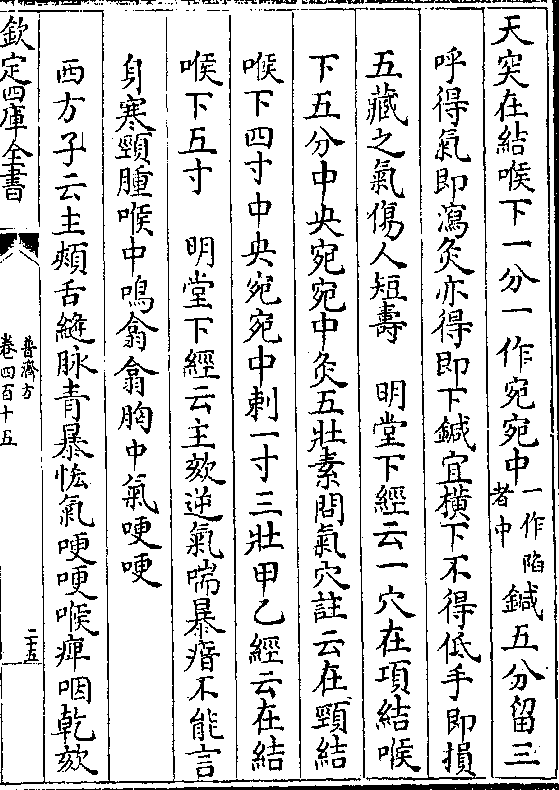 天突在結喉下一分一作宛宛中一作陷者中鍼五分留三
呼得氣即瀉灸亦得即下鍼宜横下不得低手即損
五藏之氣傷人短壽　明堂下經云一穴在項結喉
下五分中央宛宛中灸五壯素問氣穴註云在頸結
喉下四寸中央宛宛中刺一寸三壯甲乙經云在結
喉下五寸　明堂下經云主欬逆氣喘暴瘖不能言
身寒頸腫喉中鳴翕翕胸中氣哽哽
西方子云主頰舌縫脉青暴恠氣哽哽喉痺咽乾欬
欽定四庫全書
普濟方
卷四百十五
二十五